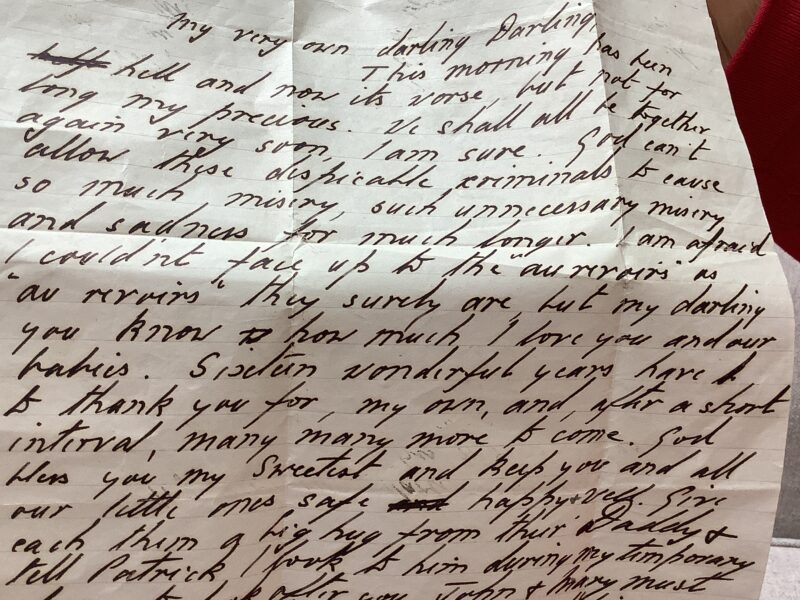 My very own darling Darling
This morning has been
hell and now its worse, but not for
long my precious. We shall all be together
again very soon, I am sure. God can't
allow these despicable criminals to cause
so much misery, such unnecessary misery
and sadness for much longer. I am afraid
I could'nt face up to the "au revoirs" as
"au revoirs" they surely are, but my darling
you know how much I love you and our
babies. Sixteen wonderful years have I
to thank you for, my own, and, after a short
interval, many many more to come. God
bless you my Sweetest and keep you and all
our little ones safe happy + well. Give
each them a big hug from their Daddy &
tell Patrick I look to him during my temporary
after you John & Mary must